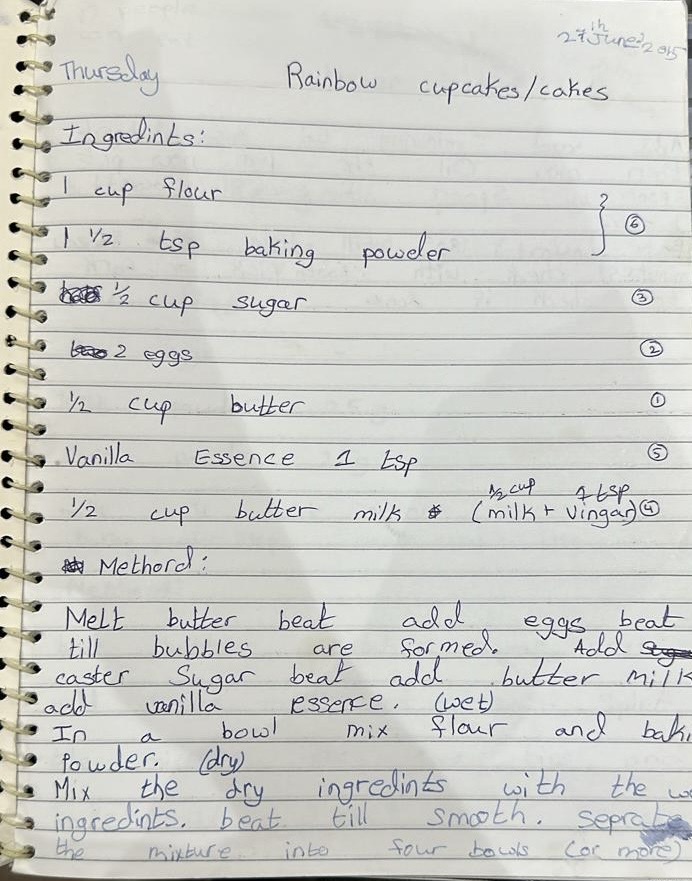 27th June 2015
Thursday Rainbow cupcakes/cakes
Ingredints:
1 cup flour
1 1/2 tsp baking powder } ⑥
1/2 cup sugar ③
2 eggs ②
1/2 cup butter ①
Vanilla Essence 1 tsp ⑤
1/2 cup 1 tsp
1/2 cup butter milk (milk + vingar) ④
Methord:
Melt butter beat add eggs beat
till bubbles are formed. Add
caster Sugar beat add butter milk
add vanilla essence. (wet)
In a bowl mix flour and baki
Powder. (dry)
Mix the dry ingredints with the
ingredints. beat till smooth. seprate
the mixture into four bowls (or more)